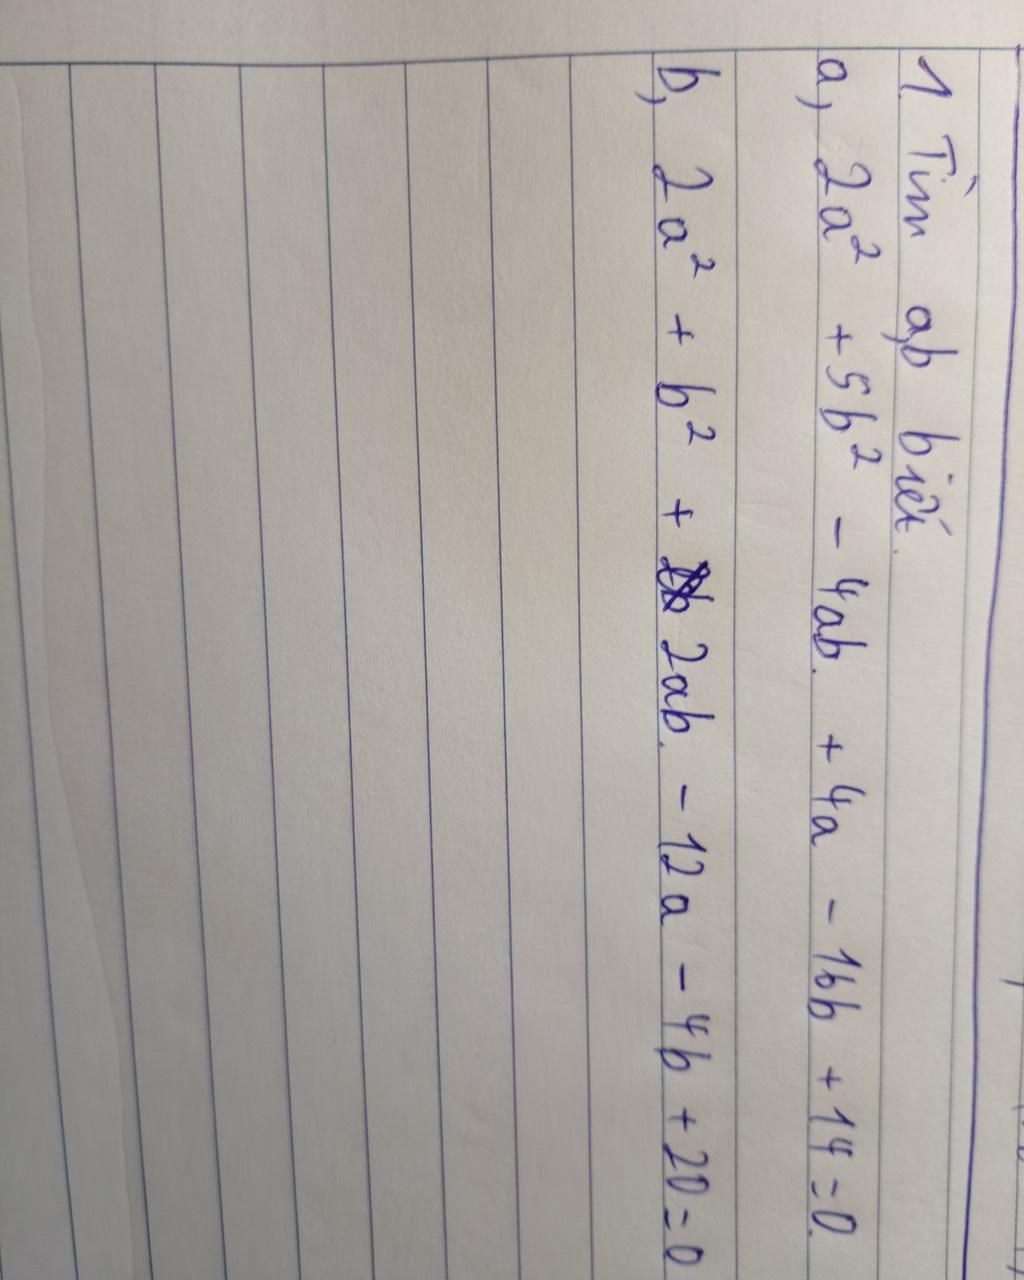 1. Tìm a,b biết.
a, 2a² + 5b² - 4ab. + 4a - 16b + 14 = 0.
b, 2a² + b² + 2ab. - 12a - 4b + 20 = 0